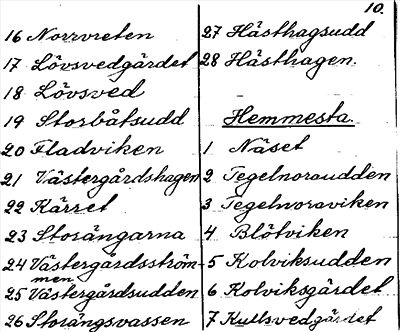 10.
16 Norrvreten
17 Lövsvedgärdet
18 Lövsved
19 Storbåtsudd
20 Fladviken
21 Västergårdshagen
22 Kärret
23 Storängarna
24 Västergårdsström-
men
25 Västergårdsudden
26 Storängsvassen
27 Hästhagsudd
28 Hästhagen.
Hemmesta.
1 Näset
2 Tegelnoraudden
3 Tegelnoraviken
4 Blötviken
5 Kolviksudden
6 Kolviksgärdet
7 Kullsvedgärdet